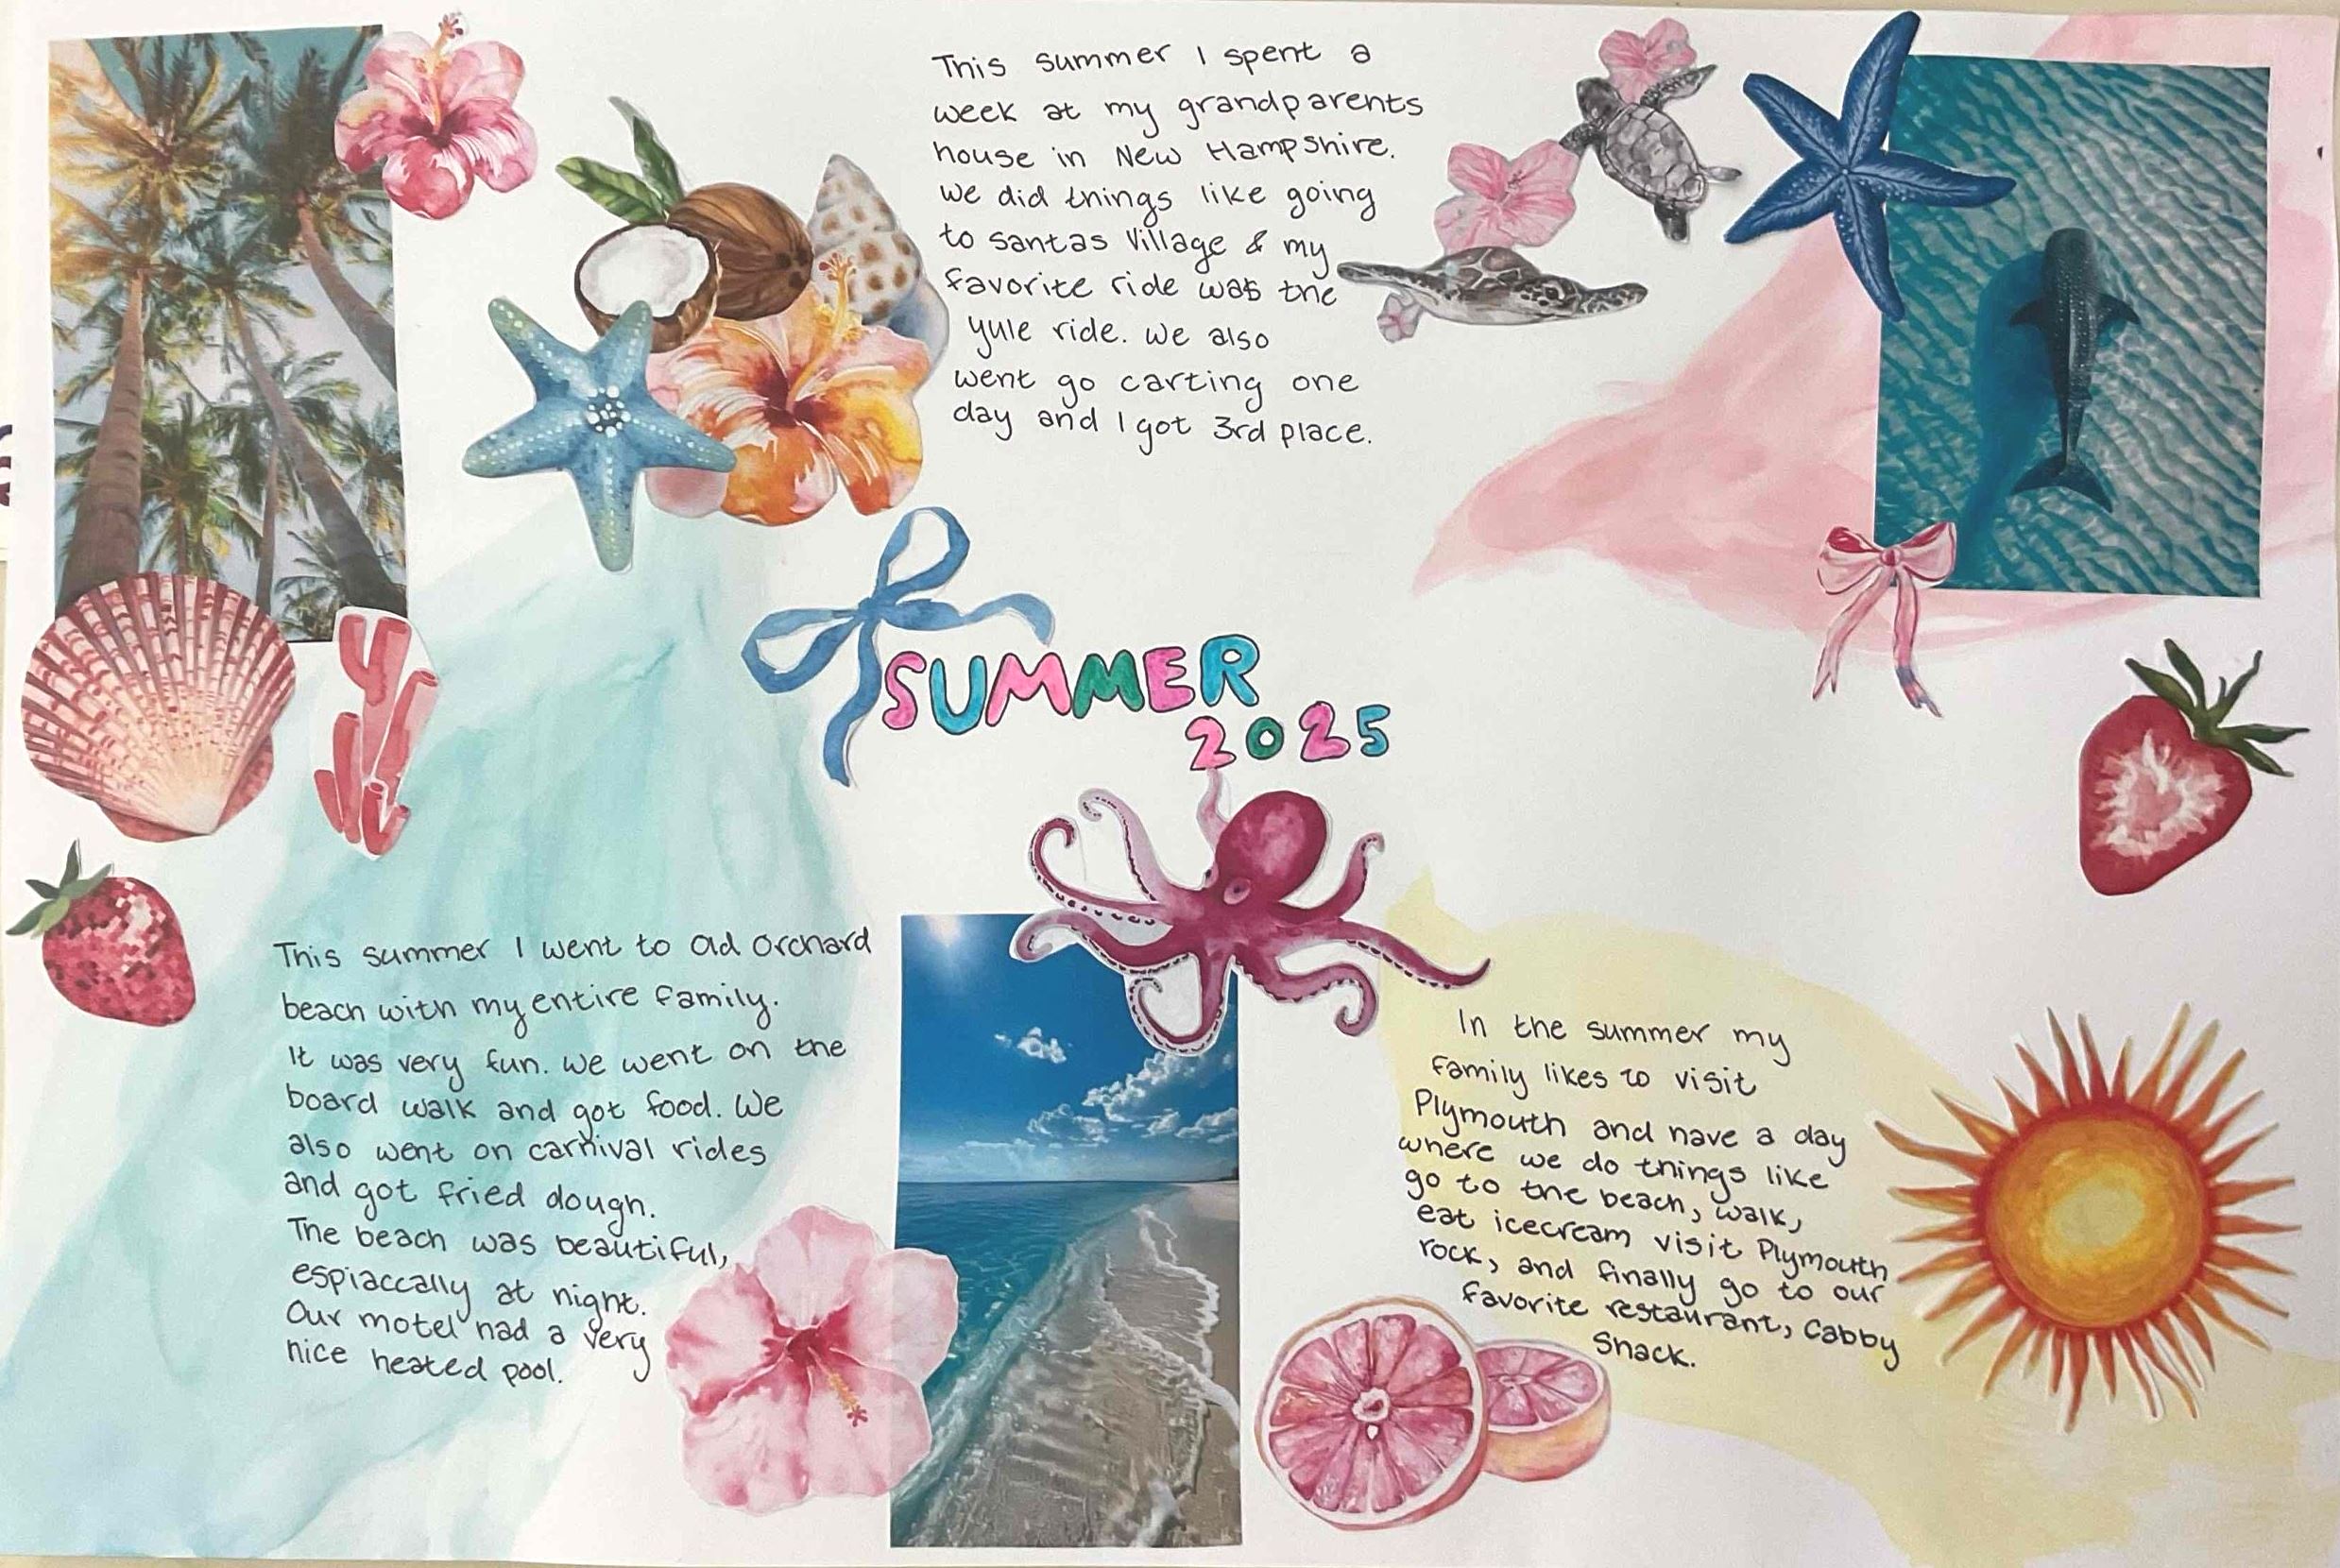 This summer I spent a
week at my grandparents
house in New Hampshire.
We did things like going
to santas Village & my
favorite ride was the
yule ride. We also
went go carting one
day and I got 3rd place.
SUMMER
2025
This summer I went to Old Orchard
beach with my entire family.
It was very fun. We went on the
board walk and got food. We
also went on carnival rides
and got fried dough.
The beach was beautiful,
espiaccally at night.
Our motel had a very
nice heated pool.
In the summer my
family likes to visit
Plymouth and have a day
where we do things like
go to the beach, walk,
eat icecream visit Plymouth
rock, and finally go to our
favorite restaurant, Cabby
Shack.